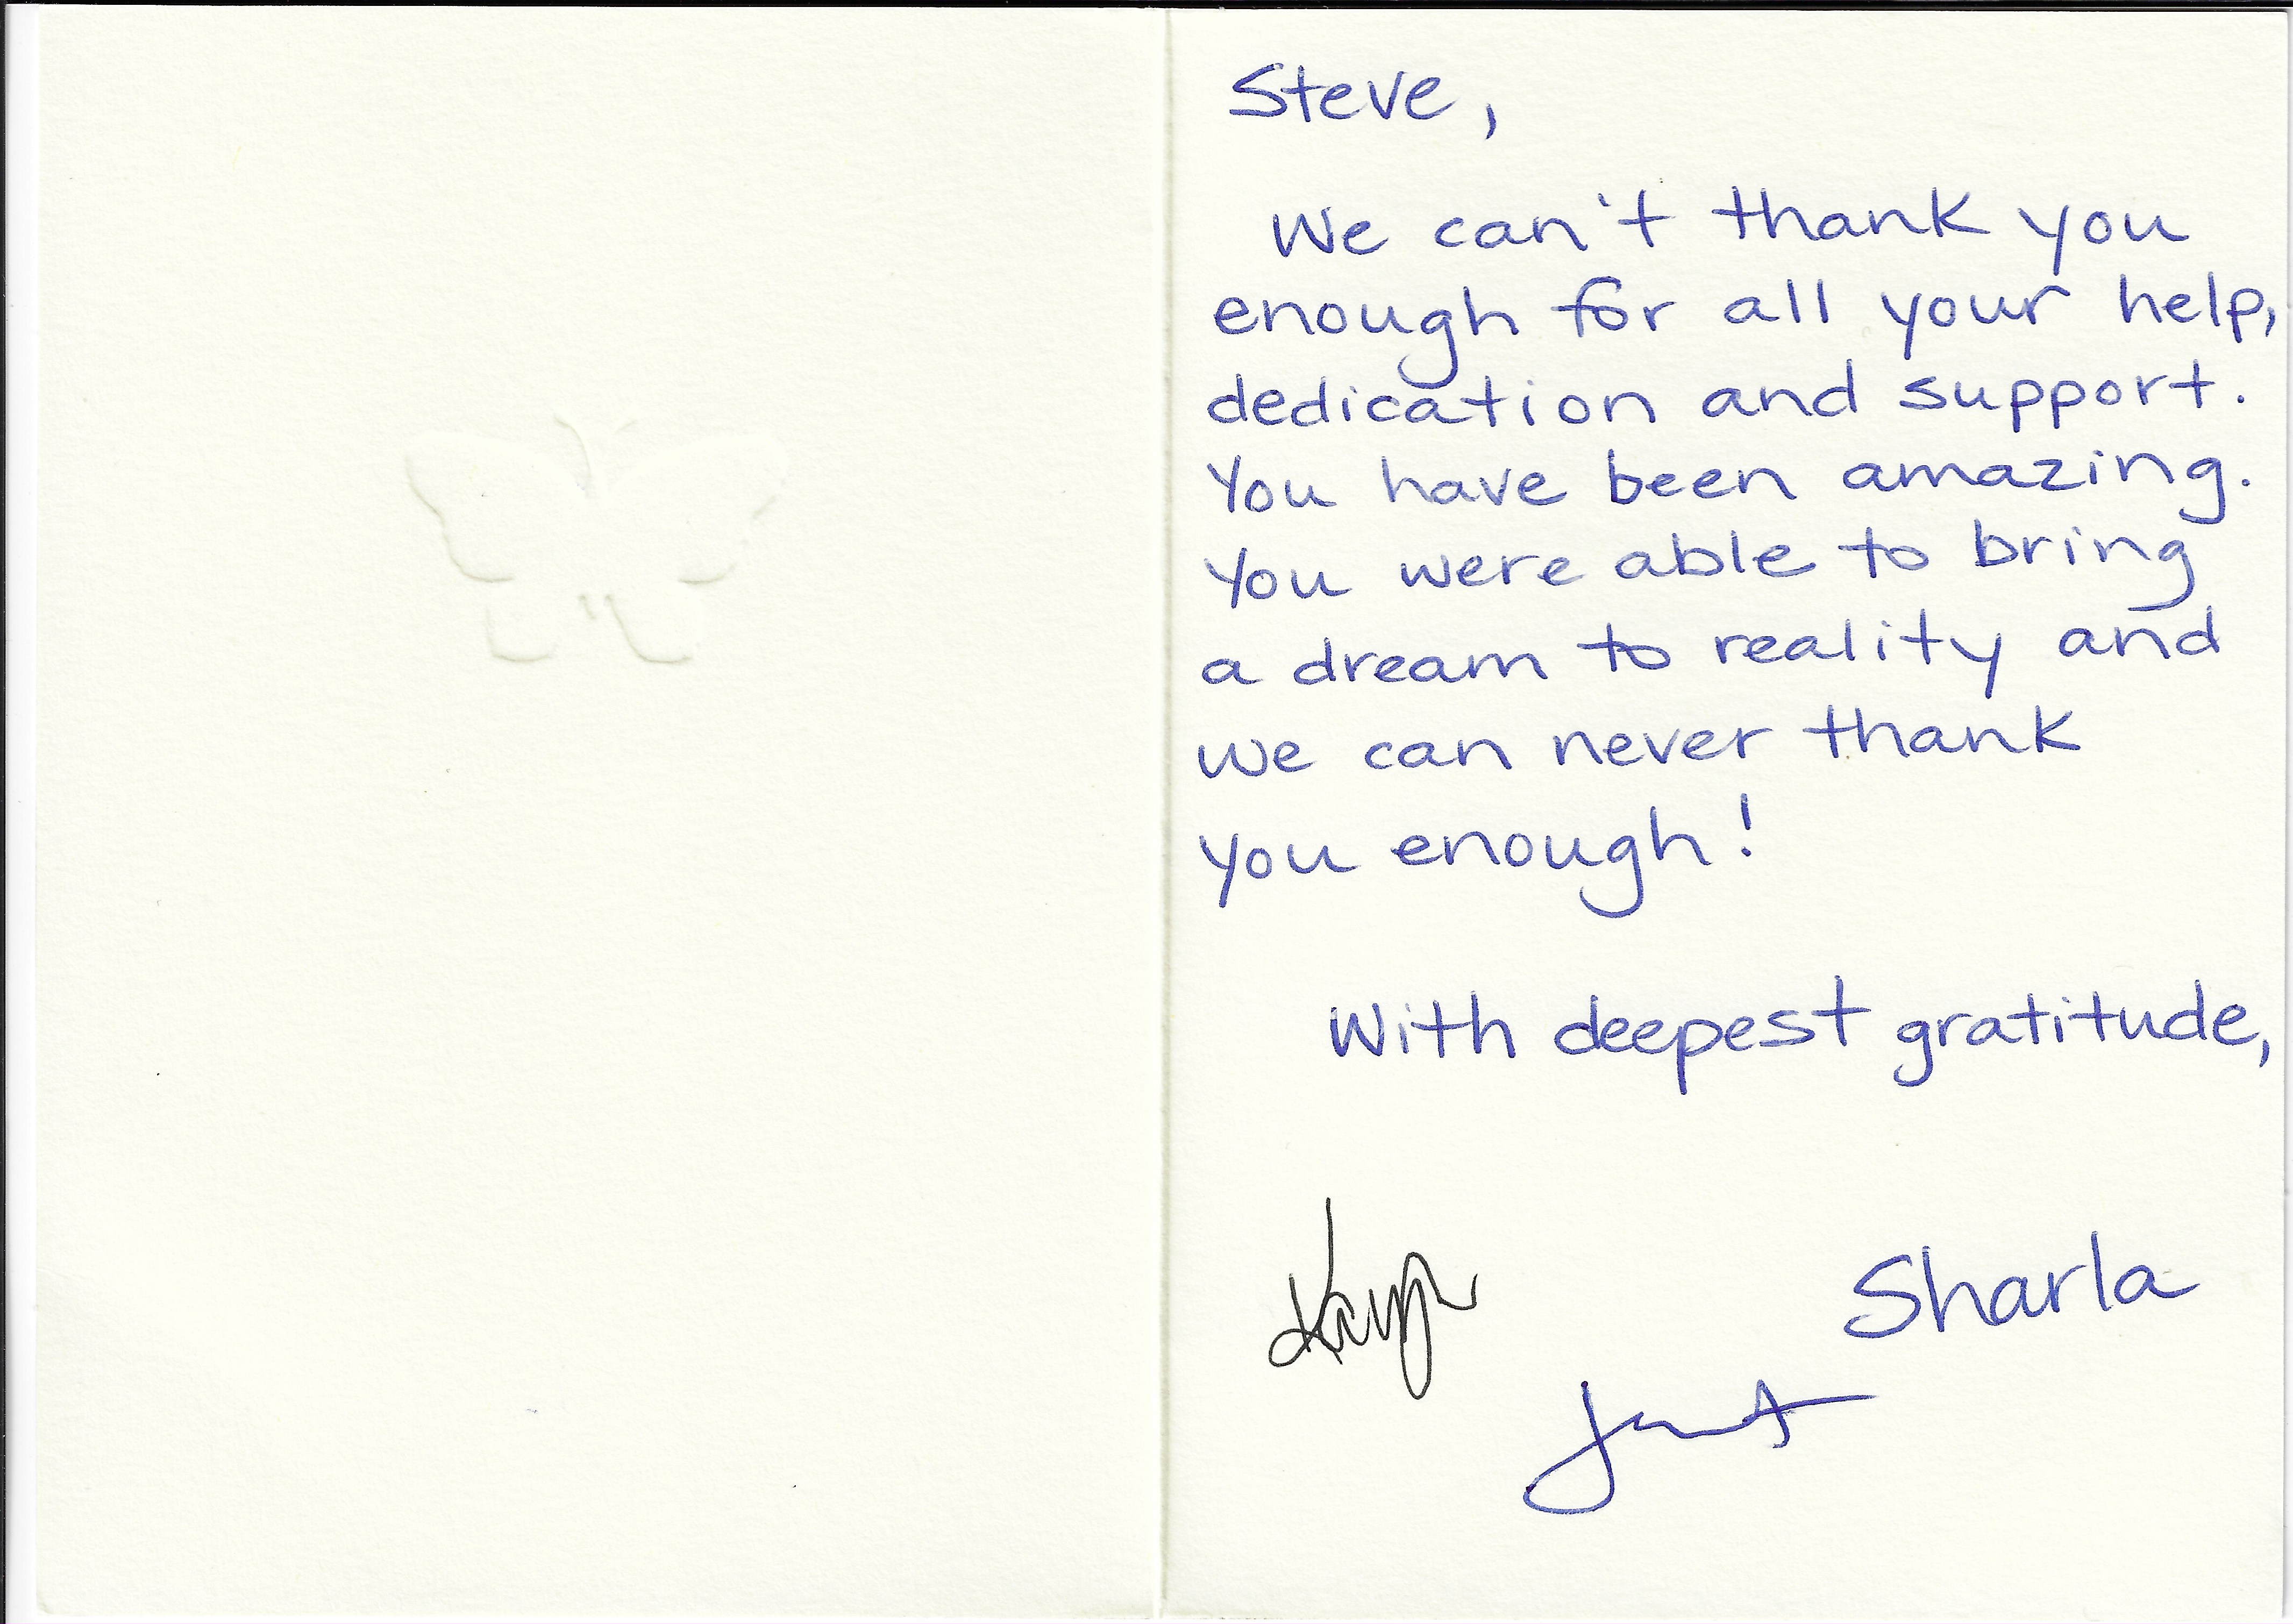 Steve,
We can't thank you
enough for all your help,
dedication and support.
You have been amazing.
You were able to bring
a dream to reality and
we can never thank
you enough!
With deepest gratitude,
Sharla